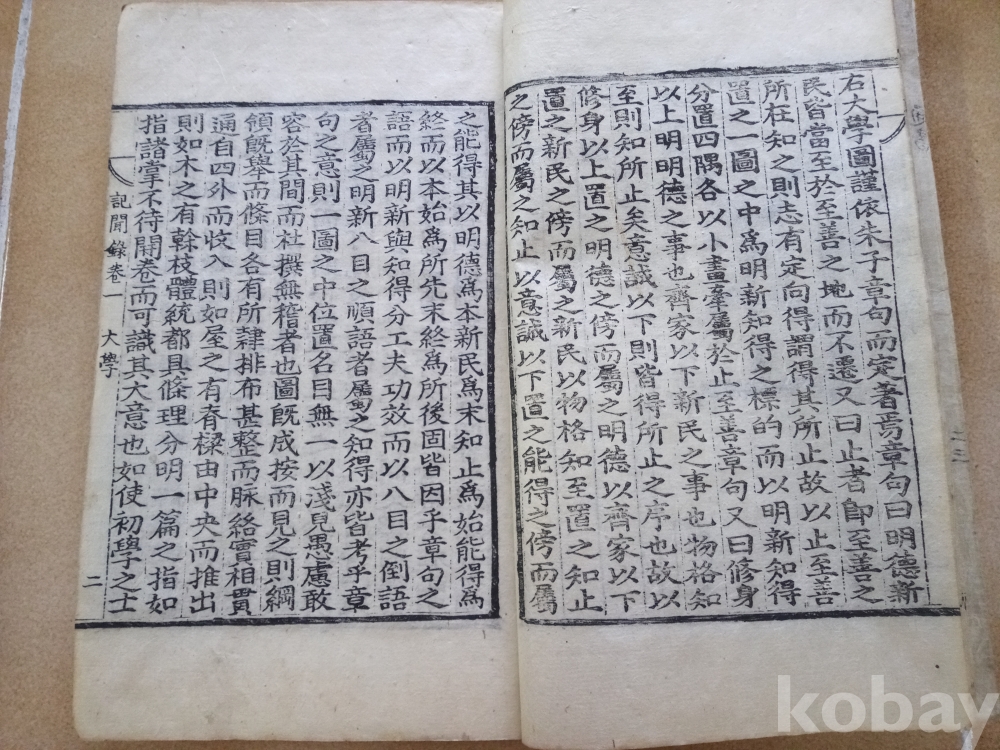 右大學圖謹依朱子章句而定著焉章句曰明德新
民皆當至於至善之地而不遷又曰止者卽至善之
所在知之則志有定向得謂得其所止故以止至善
置之一圖之中爲明新知得之標的而以明新知得
分置四隅各以小畫牽屬於止至善章句又曰脩身
以上明明德之事也齊家以下新民之事也物格知
至則知所止矣意誠以下則皆得所止之序也故以
修身以上置之明德之傍而屬之明德以齊家以下
置之新民之傍而屬之新民以物格知至置之知止
之傍而屬之知止以意誠以下置之能得之傍而屬
之能得其以明德爲本新民爲末知止爲始能得爲
終而以本始爲所先末終爲所後固皆因乎章句之
語而以明新與知得分工夫功效而以八目之倒語
者屬之明新八目之順語者屬之知得亦皆考乎章
句之意則一圖之中位置名目無一以淺見愚慮敢
容於其間而杜撰無稽者也圖旣成按而見之則綱
領旣舉而條目各有所隸排布甚整而脉絡實相貫
通自四外而收入則如屋之有脊樑由中央而推出
則如木之有幹枝體統都具條理分明一篇之指如
指諸掌不待開卷而可識其大意也如使初學之士
記聞錄卷一
大學
二
kobay